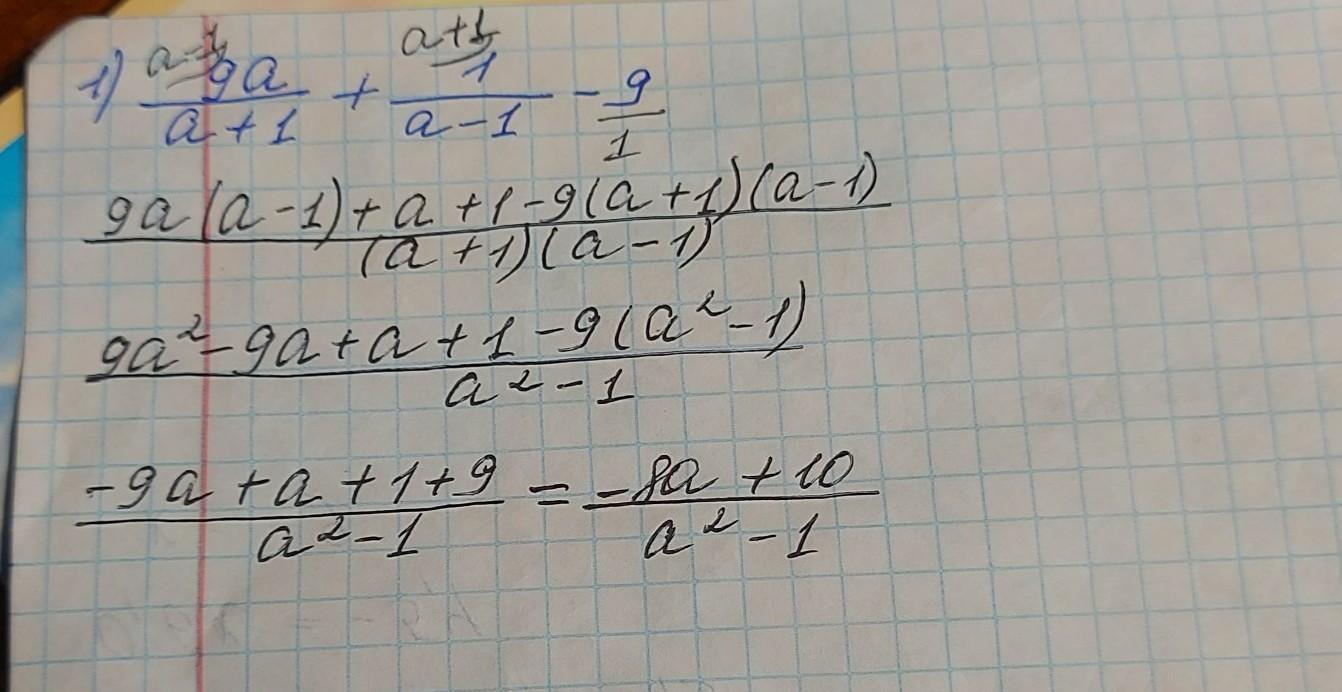 a-1 a+1
1) 9a/(a+1) + 1/(a-1) - 9/1
(9a(a-1)+a+1-9(a+1)(a-1))/((a+1)(a-1))
(9a²-9a+a+1-9(a²-1))/(a²-1)
(-9a+a+1+9)/(a²-1) = (-8a+10)/(a²-1)